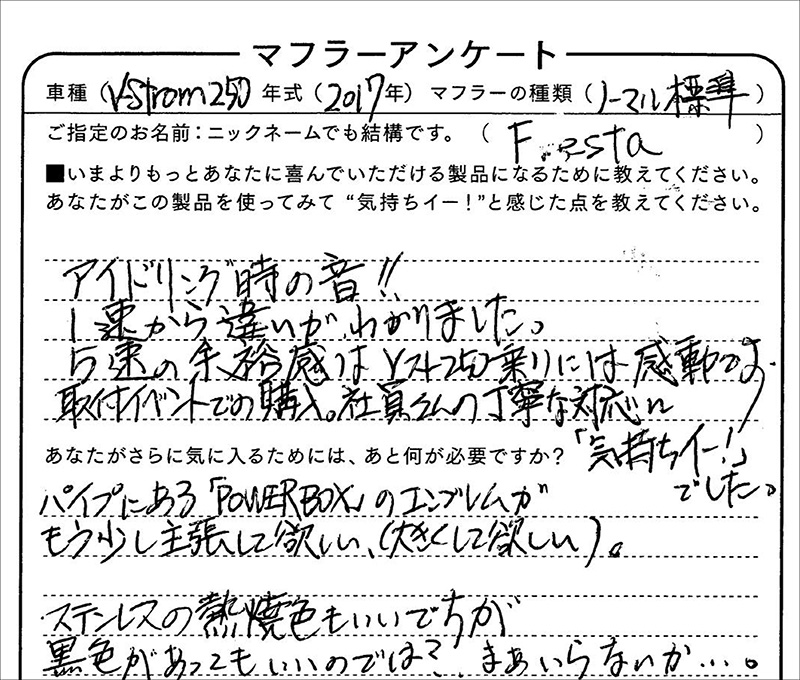 マフラーアンケート
車種（V-Strom250 年式（2017年）マフラーの種類（ノーマル標準）
ご指定のお名前：ニックネームでも結構です。（ ）
■いまよりもっとあなたに喜んでいただける製品になるために教えてください。
あなたがこの製品を使ってみて“気持ちイー！”と感じた点を教えてください。
アイドリング時の音!!
1速から違いがわかりました。
5速の余裕感はVスト250乗りには感動です。
取付イベントでの購入。社員さんの丁寧な対応に
「気持ちイー!」
でした。
あなたがさらに気に入るためには、あと何が必要ですか？
パイプにある「POWERBOX」のエンブレムが
もう少し主張して欲しい、(大きくして欲しい)。
ステンレスの熱焼色もいいですが
黒色があってもいいのでは？、まあいらないか…。